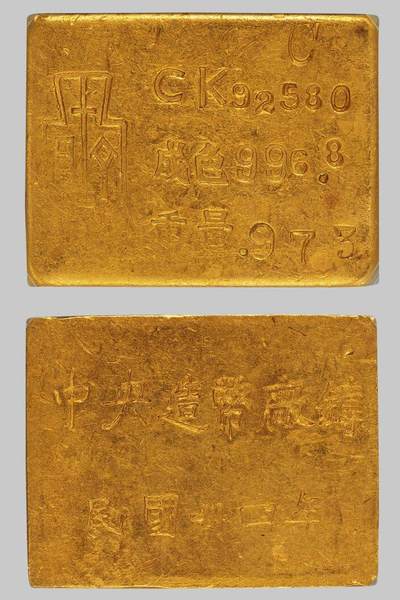 C
CK92580
成色996.8
重量.973
中央造幣廠鑄
民國卅四年